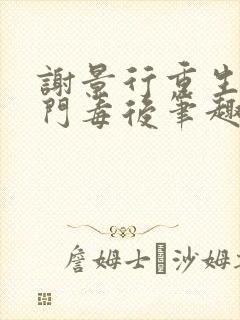 謝景行重生
門毒後筆趣
詹姆士 沙姆